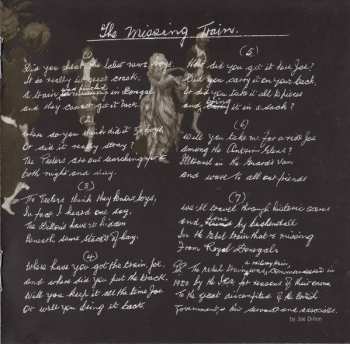 The Missing Train.
Did you hear the latest news boys
It is really a great crack.
A train in Donegal
and they cannot get it back.
(2)
Where do you think did it
Or did it really stray?
The Peelers are out searching for it
both night and day.
(3)
The Peelers think they know boys,
In fact I heard one say.
The have hidden
Beneath some stacks of hay.
(4)
Where have you got the train Joe.
and where did you put the track.
Will you keep it all the time Joe
Or will you bring it back.
(5)
How did you get it here Joe?
Did you carry it on your back.
Or did you take it all to pieces
and bring it in a sack?
(6)
Will you take me for a ride Joe
among the Antrim Glens?
in the Guard's Van
and wave to all our friends
(7)
We'll travel through historic scenes
and by
In the Rebel train that is missing
From Royal Donegal.
The rebel train was commandeered in
1920 by the IRA for reasons of their own
To the great discomfiture of the British
Government, his servants and associates.
by Joe Dolan